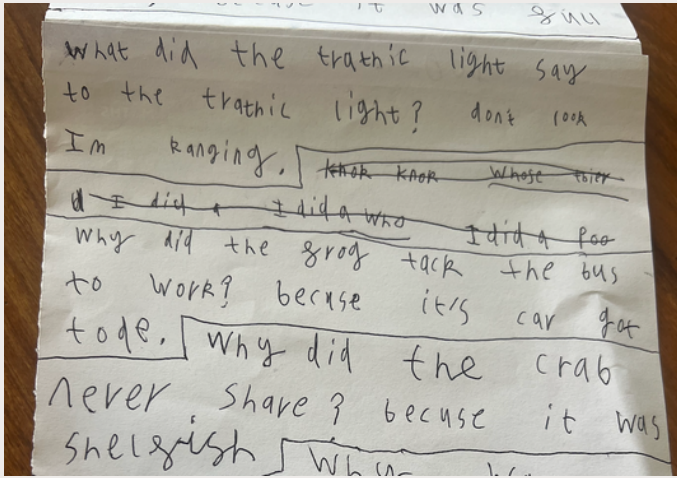 it was
What did the trathic light say
to the trathic light? don't look
I'm kanging. Knok knok Whose thier
I did a I did a who I did a Poo
Why did the grog tack the bus
to work? becuse it's car got
tode. Why did the crab
never share? becuse it was
shelgish Why